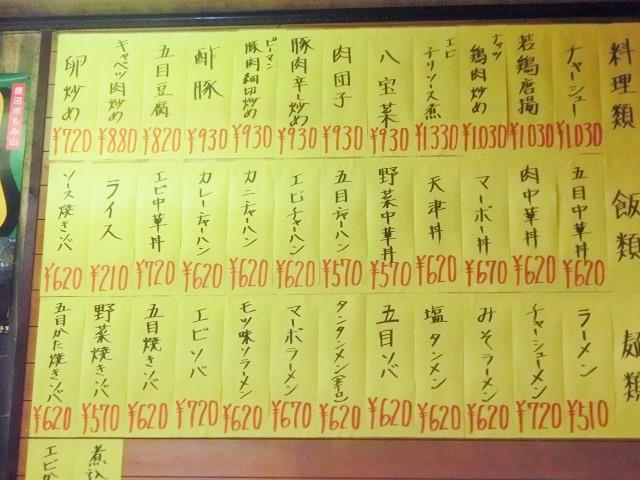 料理類
チャーシュー ¥1,030
若鶏唐揚 ¥1,030
ナッツ鶏肉炒め ¥1,030
エビチリソース煮 ¥1330
八宝菜 ¥930
肉団子 ¥930
豚肉辛し炒め ¥930
ピーマン豚肉細切炒め ¥930
酢豚 ¥930
五目豆腐 ¥820
キャベツ肉炒め ¥880
卵炒め ¥720
飯類
五目中華丼 ¥620
肉中華丼 ¥620
マーボー丼 ¥670
天津丼 ¥620
野菜中華丼 ¥570
五目チャーハン ¥570
エビチャーハン ¥620
カニチャーハン ¥620
カレーチャーハン ¥620
エビ中華丼 ¥720
ライス ¥210
ソース焼きソバ ¥620
麺類
ラーメン ¥510
チャーシューメン ¥720
みそラーメン ¥620
塩タンメン ¥620
五目ソバ ¥620
タンタンメン ¥620
マーボラーメン ¥670
モツ味ソラーメン ¥620
エビソバ ¥720
五目焼きソバ ¥620
野菜焼きソバ ¥570
五目かた焼きソバ ¥620
煮込
エビか